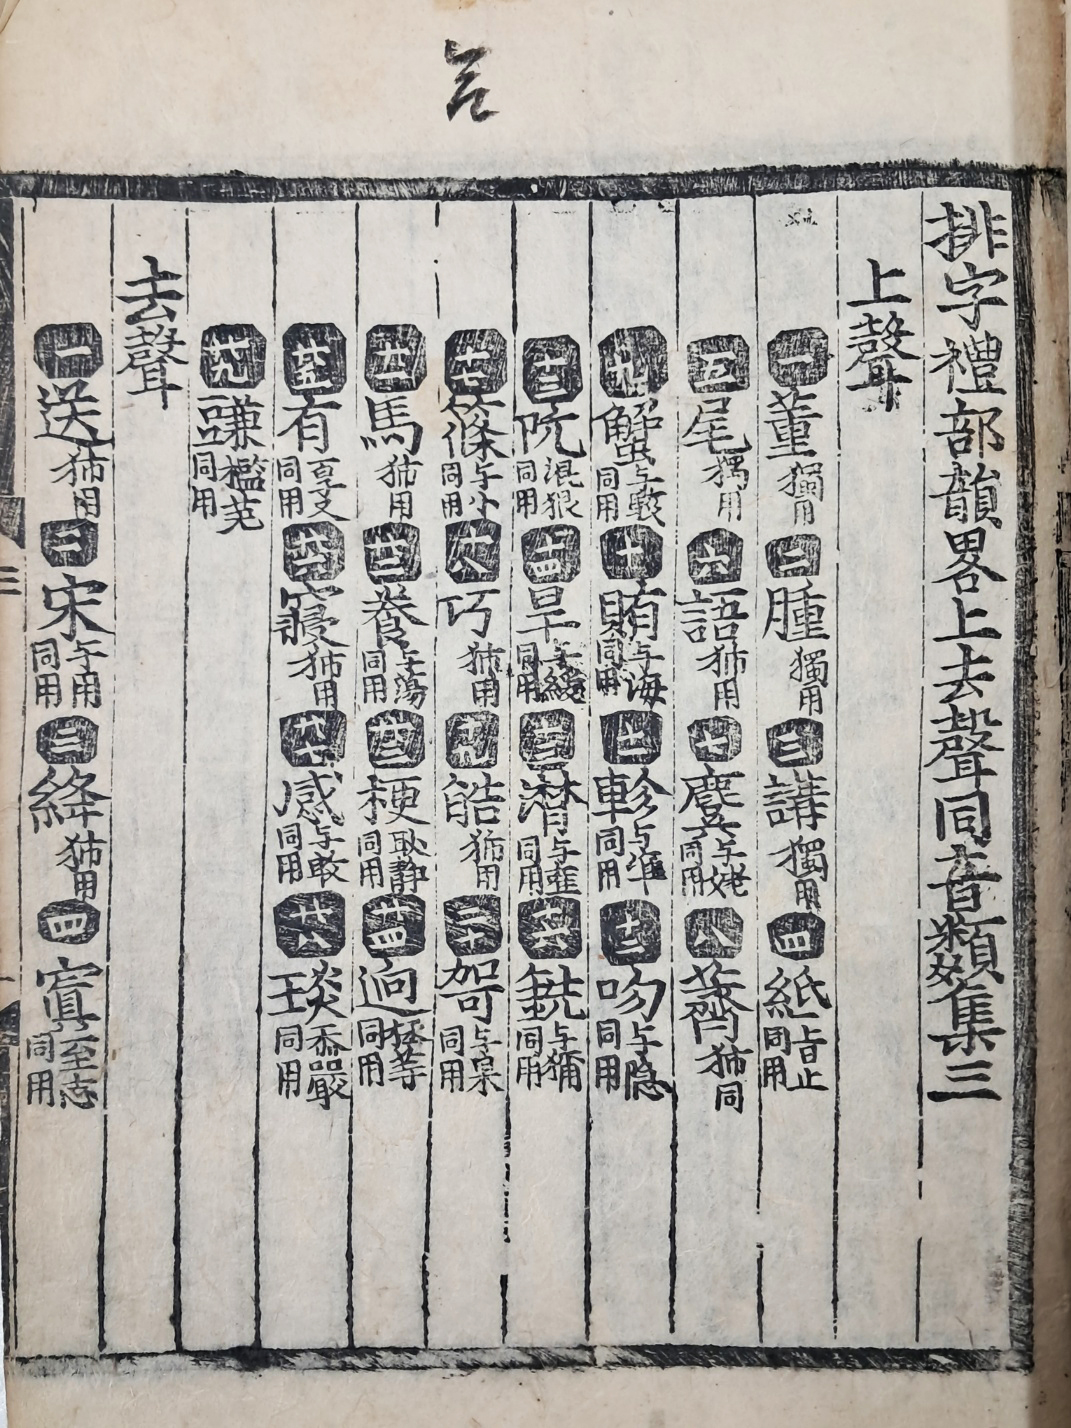 排字禮部韻畧上去聲同音類集三
上聲
一董獨用二腫獨用三講獨用四紙旨止同用
五尾獨用六語独用七麌与姥同用八薺独同
九蟹与駭同用十賄与海同用十一軫与準同用十二吻与隐同用
十三阮混狠同用十四旱与緩同用十五潸与產同用十六銑与獮同用
十七篠与小同用十八巧独用十九皓独用二十哿与果同用
廿一馬独用廿二養与蕩同用廿三梗耿静同用廿四迥拯等同用
廿五有厚叉同用廿六寑独用廿七感与敢同用廿八琰忝嚴同用
廿九豏檻范同用
去聲
一送独用二宋与用同用三絳独用四寘至志同用